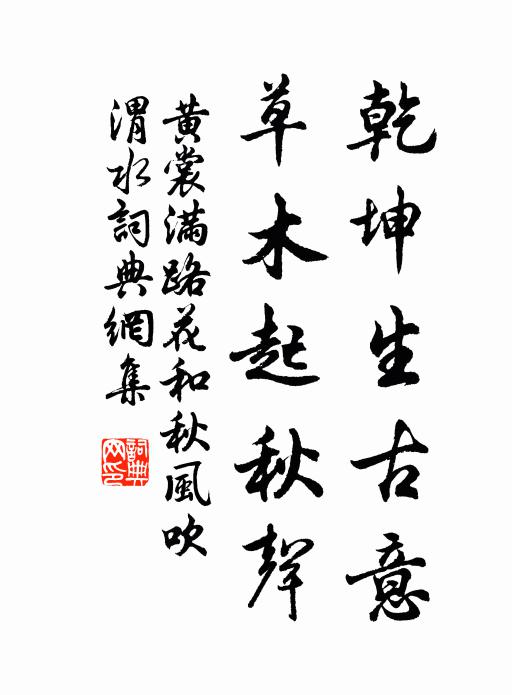 乾坤生古意
草木起秋聲
黃裳滿路花和秋風吹
渭水詞典網集
詞典網印